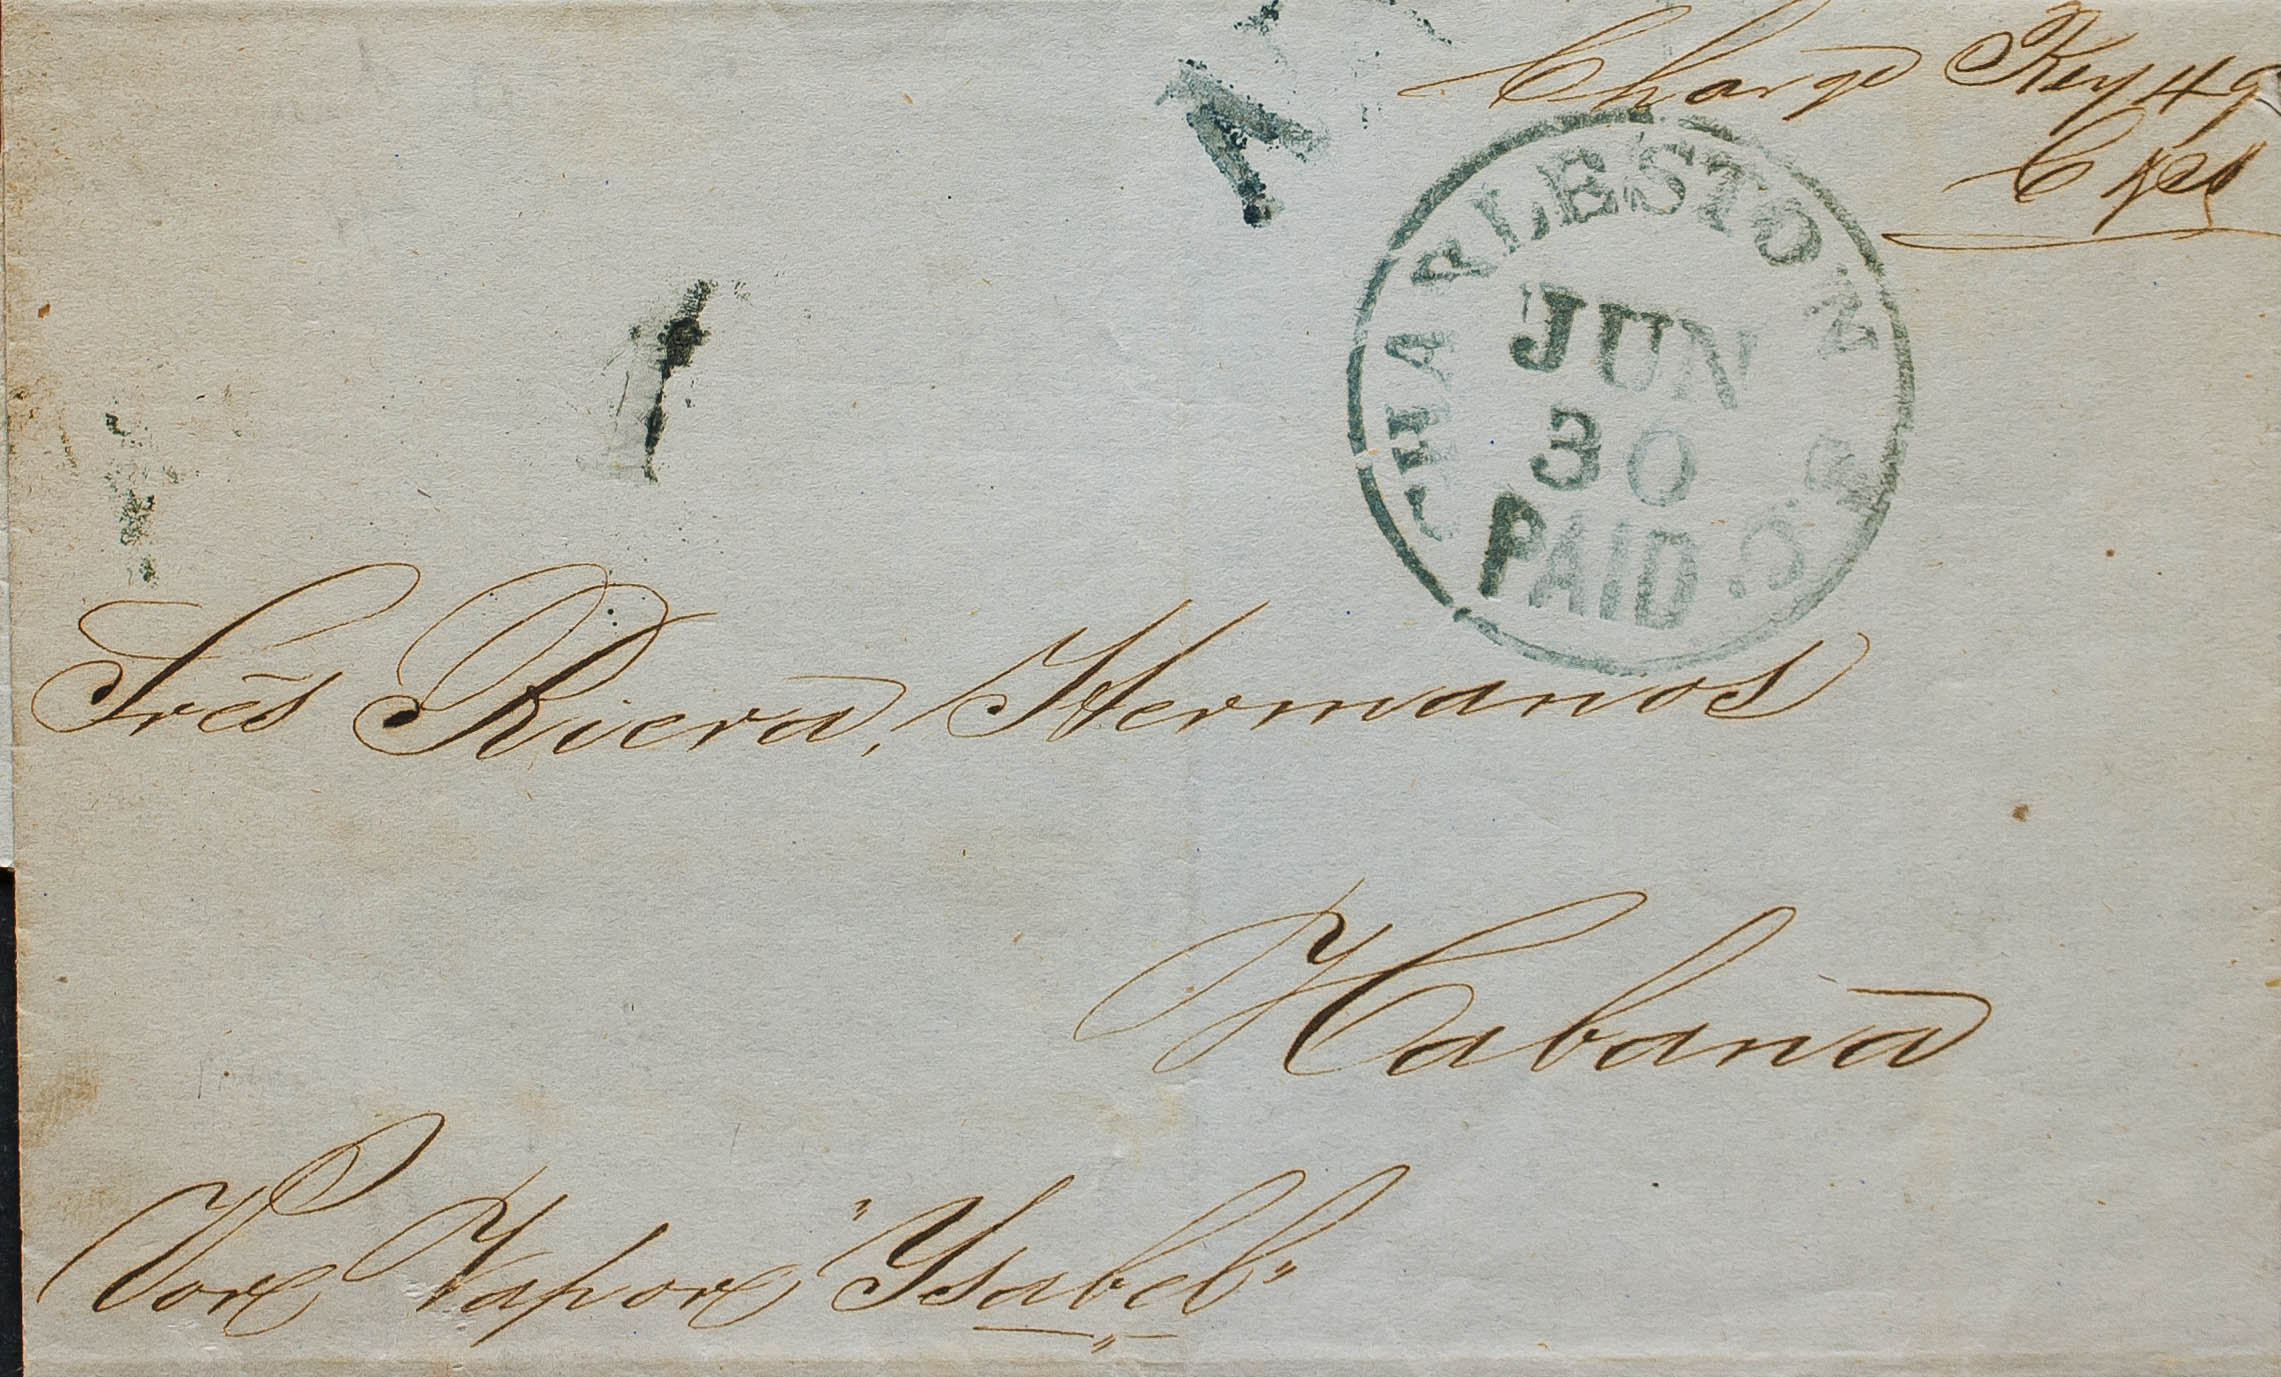 Charge Key 49
CHARLESTON S.C.
JUN
30
PAID
Sres Riera, Hermanos
Habana
Por Vapor "Ysabel"